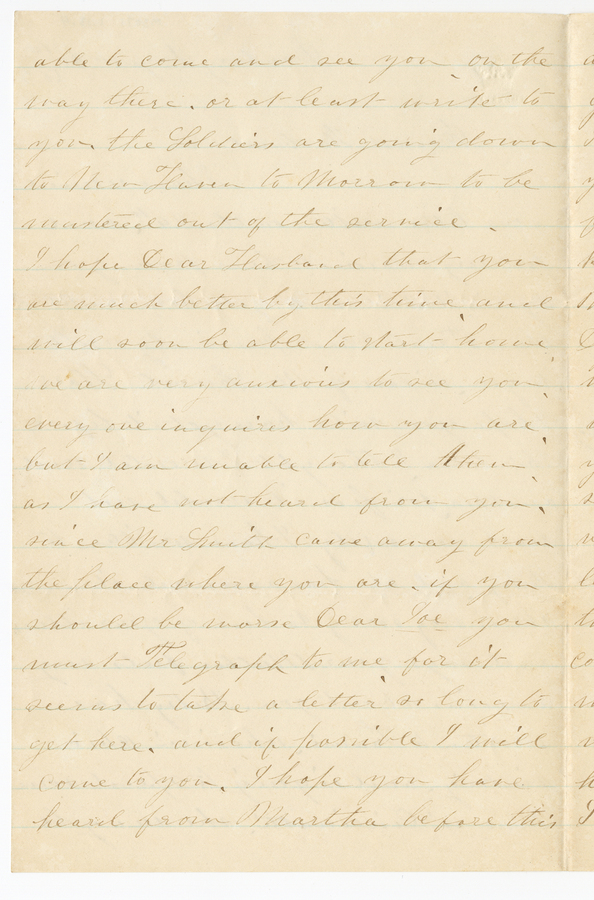 able to come and see you on the
way there. or at least write to
you. the Soldiers are going down
to New Haven to Morrow to be
mustered out of the service.
I hope Dear Husband that you
are much better by this time and
will soon be able to start home
we are very anxious to see you
every one inquires how you are
but I am unable to tell them
as I have not heard from you.
since Mr Smith came away from
the place where you are. if you
should be worse Dear Joe you
must Telegraph to me for it
seems to take a letter so long to
get here. and if possible I will
come to you. I hope you have
heard from Martha before this